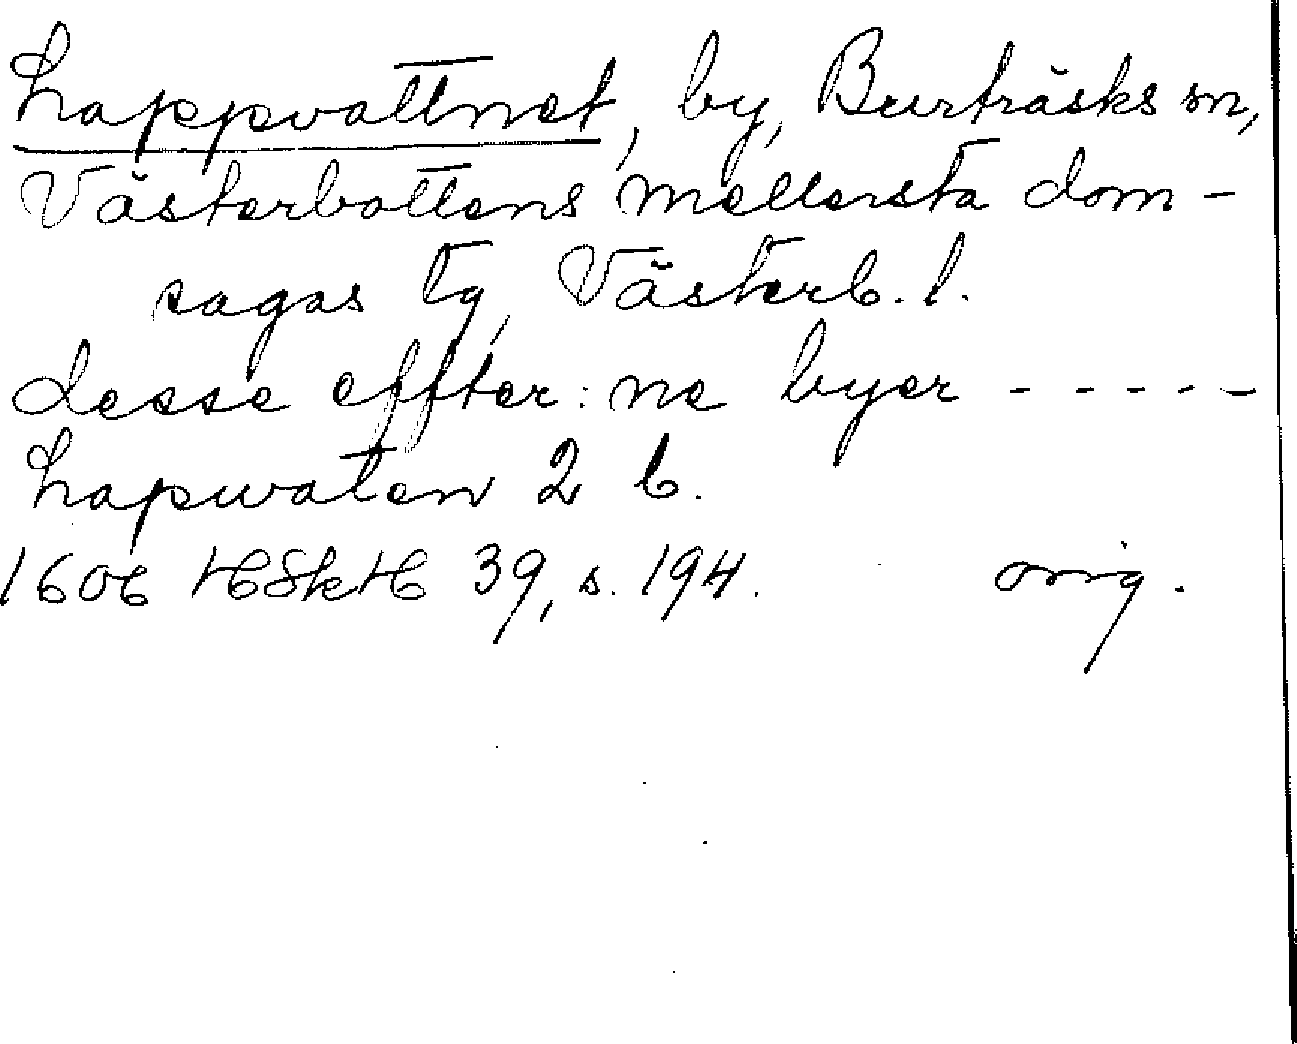 Lappvattnet, by, Burträsks sn,
Västerbottens mellersta dom-
sagas tg, Västerb. l.
desse effter: ne byer - - - - -
Lapwaten 2 b.
1606 HSkH 39, s. 194. orig.